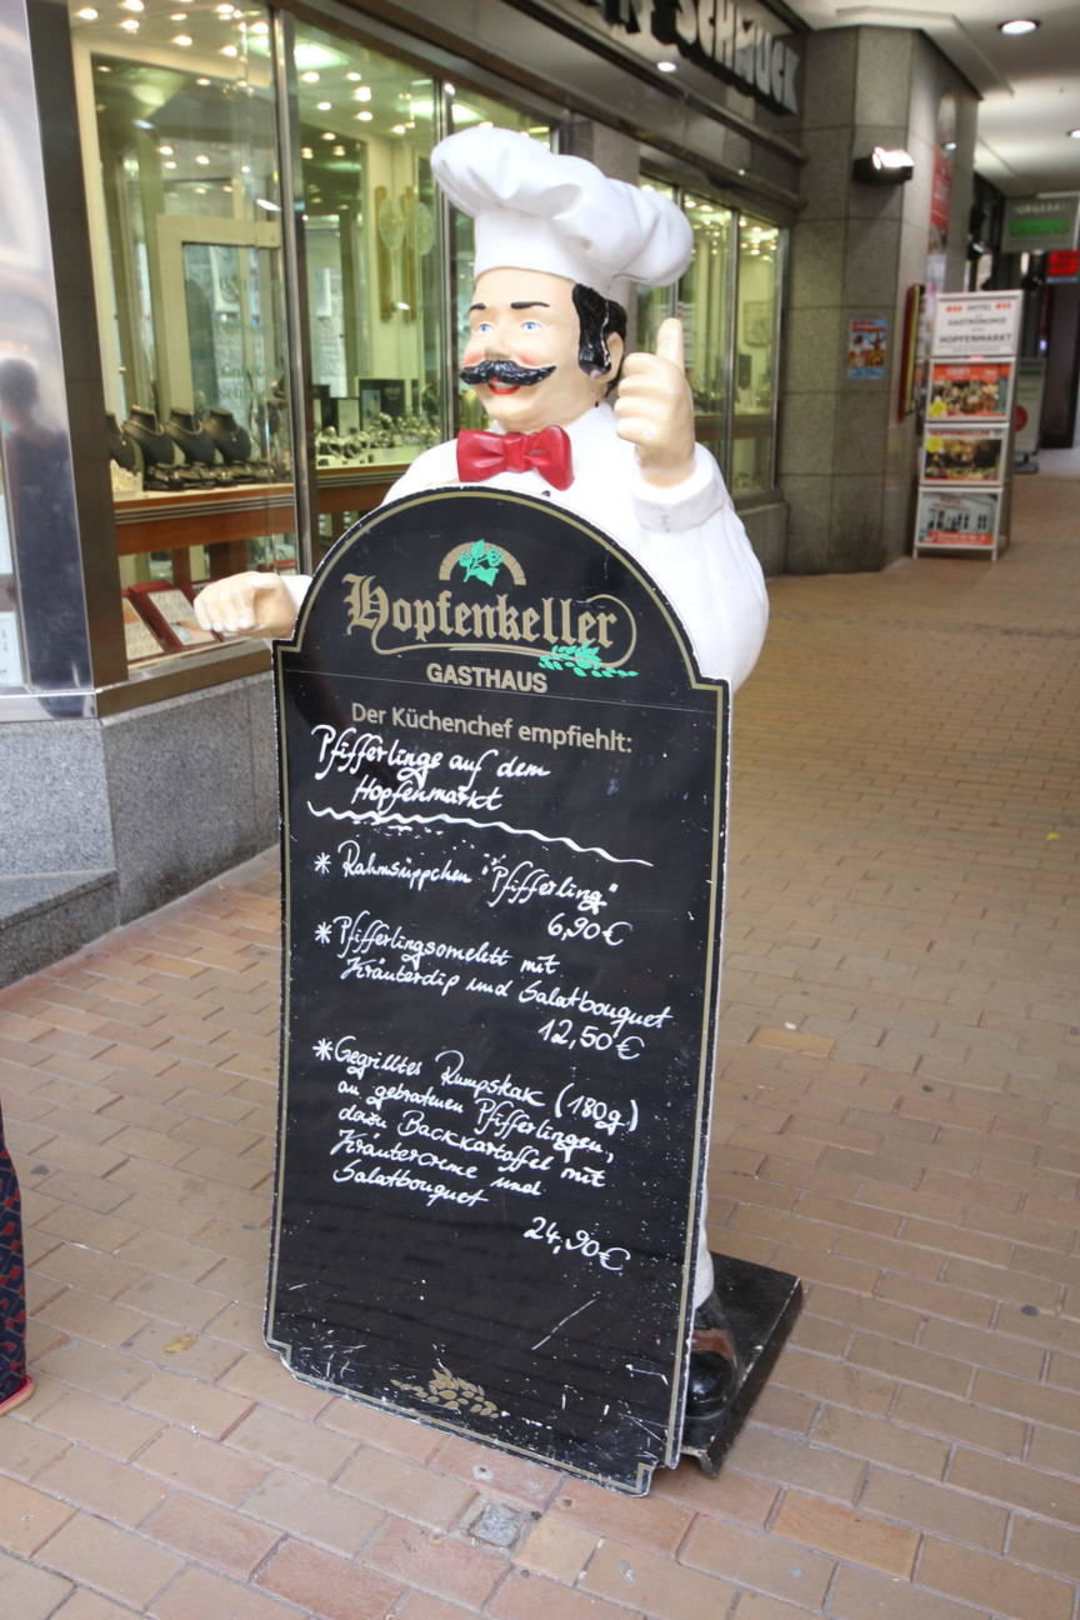 SCHMUCK
HOTEL
GASTRONOMIE
HOPFENMARKT
Hopfenkeller
GASTHAUS
Der Küchenchef empfiehlt:
Pfifferlinge auf dem
Hopfenmarkt
* Rahmsüppchen "Pfifferling"
6,90€
* Pfifferlingsomelett mit
Kräuterdip und Salatbouquet
12,50€
* Gegrilltes Rumpskak (180g)
an gebratenen Pfifferlingen,
dazu Backkartoffel mit
Kräutercreme und
Salatbouquet
24,90€